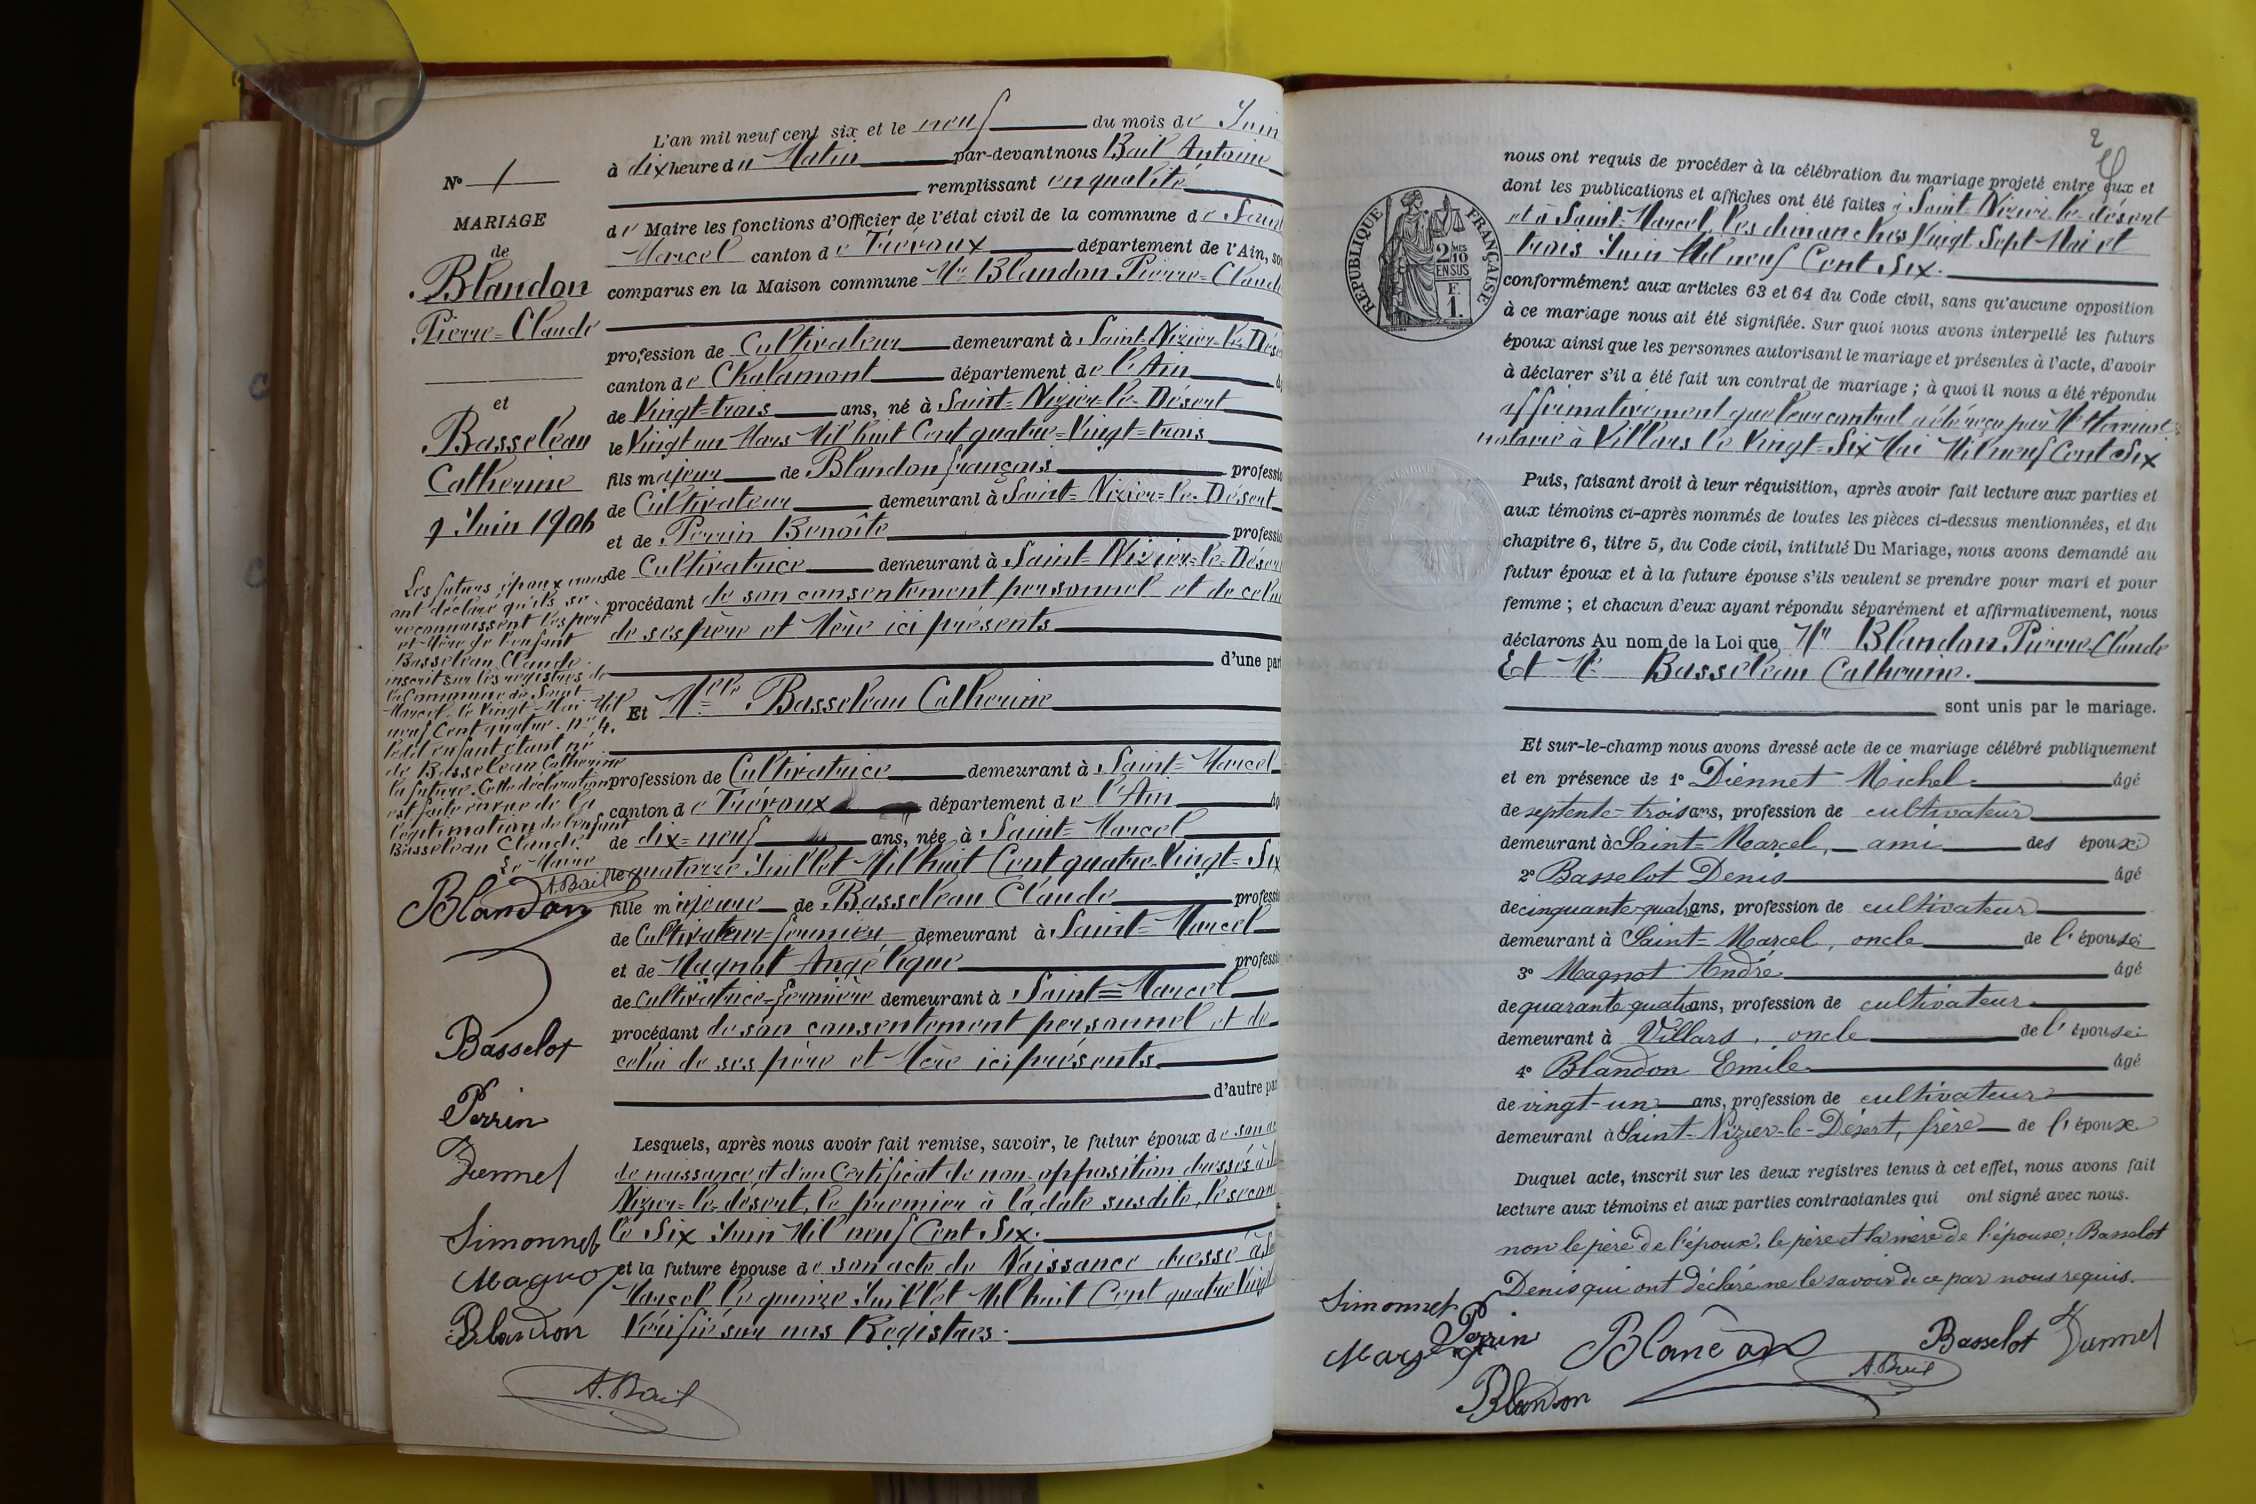 L'an mil neuf cent six et le neuf du mois de Juin
à dix heure du Matin par-devant nous Bail Antoine
remplissant en qualité
de Maire les fonctions d'Officier de l'état civil de la commune de Saint
Marcel canton de Trévoux département de l'Ain, so
comparus en la Maison commune Mr Blandon Pierre=Claude
profession de Cultivateur demeurant à Saint-Nizier-le-Dése
canton de Chalamont département de l'Ain
de Vingt=trois ans, né à Saint=Nizier-le-Désert
le Vingt un Mars Mil huit Cent quatre=Vingt=trois
fils majeur de Blandon françois professi
de Cultivateur demeurant à Saint=Nizier=le-Désert
et de Perrin Benoîte professi
de Cultivatrice demeurant à Saint=Nizier=le-Déser
procédant de son consentement personnel et de celui
de ses père et Mère ici présents
d'une par
Et Melle Basseleau Catherine
profession de Cultivatrice demeurant à Saint=Marcel
canton de Trévoux département de l'Ain
de dix=neuf ans, née à Saint=Marcel
le quatorze Juillet Mil huit Cent quatre-Vingt=Six
fille mineure de Basseleau Claude professi
de Cultivateur=fermier demeurant à Saint=Marcel
et de Magnot Angélique professi
de Cultivatrice=fermière demeurant à Saint=Marcel
procédant de son consentement personnel et de
celui de ses père et Mère ici présents
d'autre par
Lesquels, après nous avoir fait remise, savoir, le futur époux de son
de naissance et d'un Certificat de non-opposition dressés à
Nizier=le-désert, le premier à la date susdite, le secon
le Six Juin Mil neuf Cent Six.
et la future épouse de son acte de Naissance dressé à
Marcel le quinze Juillet Mil huit Cent quatre Vingt
Vérifié sur nos Registres.
A. Bail
No 1
MARIAGE
de
Blandon
Pierre=Claude
et
Basseleau
Catherine
9 Juin 1906
Les futurs époux nous
ont déclaré qu'ils se
reconnaissent les père
et Mère de l'enfant
Basseleau Claude
inscrit sur les registres de
la Commune de Saint
Marcel, le Vingt-Mai Mil
neuf Cent quatre. No 4.
Ledit enfant étant né
de Basseleau Catherine
la future. Cette déclaration
est faite en vue de la
légitimation de l'enfant
Basseleau Claude.
Le Maire
A. Bail
Blandon
Basselot
Perrin
Simonnet
Magnot
Blandon
2
nous ont requis de procéder à la célébration du mariage projeté entre eux et
dont les publications et affiches ont été faites à Saint-Nizier-le-désert
et à Saint-Marcel, les dimanches Vingt Sept Mai et
trois Juin Mil neuf Cent Six.
conformément aux articles 63 et 64 du Code civil, sans qu'aucune opposition
à ce mariage nous ait été signifiée. Sur quoi nous avons interpellé les futurs
époux ainsi que les personnes autorisant le mariage et présentes à l'acte, d'avoir
à déclarer s'il a été fait un contrat de mariage ; à quoi il nous a été répondu
affirmativement que leur contrat a été reçu par Me
notaire à Villars le Vingt-Six Mai Mil neuf Cent Six
Puis, faisant droit à leur réquisition, après avoir fait lecture aux parties et
aux témoins ci-après nommés de toutes les pièces ci-dessus mentionnées, et du
chapitre 6, titre 5, du Code civil, intitulé Du Mariage, nous avons demandé au
futur époux et à la future épouse s'ils veulent se prendre pour mari et pour
femme ; et chacun d'eux ayant répondu séparément et affirmativement, nous
déclarons Au nom de la Loi que Mr Blandon Pierre-Claude
Et Me Basseleau Catherine.
sont unis par le mariage.
Et sur-le-champ nous avons dressé acte de ce mariage célébré publiquement
et en présence de 1o Diennet Michel âgé
de septente-trois ans, profession de cultivateur
demeurant à Saint=Marcel, ami des époux
2o Basselot Denis âgé
de cinquante-quatre ans, profession de cultivateur
demeurant à Saint=Marcel, oncle de l'épouse
3o Magnot André âgé
de quarante-quatre ans, profession de cultivateur
demeurant à Villars, oncle de l'épouse
4o Blandon Emile âgé
de vingt-un ans, profession de cultivateur
demeurant à Saint-Nizier-le-Désert, frère de l'époux
Duquel acte, inscrit sur les deux registres tenus à cet effet, nous avons fait
lecture aux témoins et aux parties contractantes qui ont signé avec nous.
non le père de l'époux, le père et la mère de l'épouse, Basselot
Denis qui ont déclaré ne le savoir de ce par nous requis.
Simonnet
Perrin
Blandon
Basselot
A. Bail
Blandon
RÉPUBLIQUE FRANÇAISE
2 MES
10
EN SUS
F.
1.